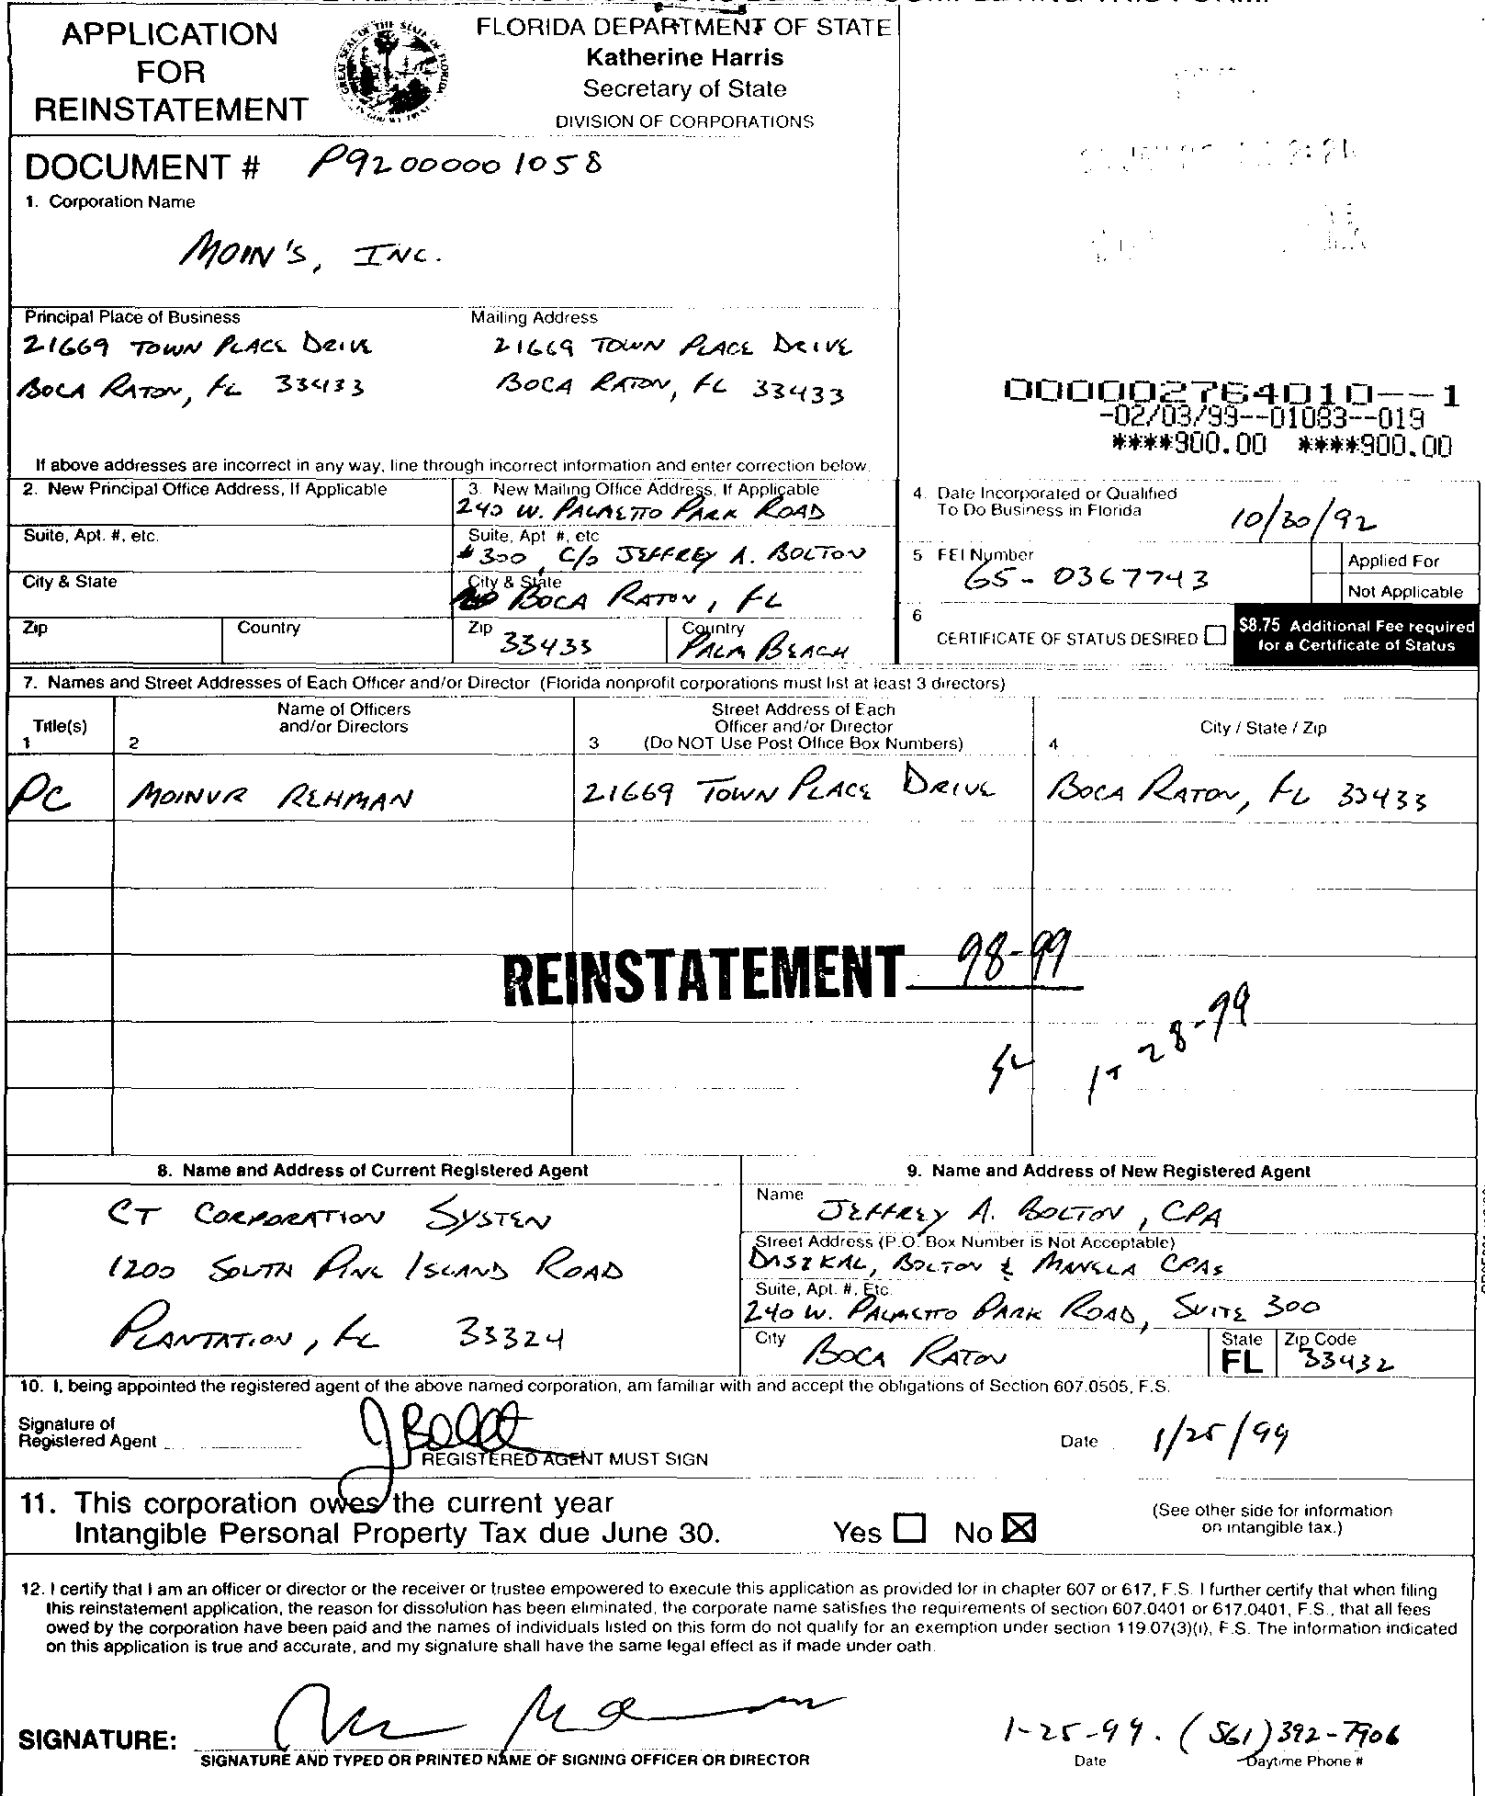 APPLICATION
FOR
REINSTATEMENT
FLORIDA DEPARTMENT OF STATE
Katherine Harris
Secretary of State
DIVISION OF CORPORATIONS
DOCUMENT # P92000001058
1. Corporation Name
MOIN'S, INC.
Principal Place of Business
21669 TOWN PLACE DRIVE
BOCA RATON, FL 33433
Mailing Address
21669 TOWN PLACE DRIVE
BOCA RATON, FL 33433
000002764010--1
-02/03/99--01083--019
****900.00 ****900.00
If above addresses are incorrect in any way, line through incorrect information and enter correction below.
2. New Principal Office Address, If Applicable
Suite, Apt. #, etc.
City & State
Zip Country
3. New Mailing Office Address, If Applicable
240 W. PALMETTO PARK ROAD
Suite, Apt #, etc
#300, C/O JEFFREY A. BOLTON
City & State
BOCA RATON, FL
Zip 33433 Country PALM BEACH
4. Date Incorporated or Qualified
To Do Business in Florida 10/30/92
5 FEI Number
65-0367743
Applied For
Not Applicable
6
CERTIFICATE OF STATUS DESIRED
$8.75 Additional Fee required
for a Certificate of Status
7. Names and Street Addresses of Each Officer and/or Director (Florida nonprofit corporations must list at least 3 directors)
Title(s)
1
Name of Officers
and/or Directors
2
Street Address of Each
Officer and/or Director
3 (Do NOT Use Post Office Box Numbers)
City / State / Zip
4
PC MOINUR REHMAN 21669 TOWN PLACE DRIVE BOCA RATON, FL 33433
REINSTATEMENT 98-99
1-28-99
8. Name and Address of Current Registered Agent
CT CORPORATION SYSTEM
1200 SOUTH PINE ISLAND ROAD
PLANTATION, FL 33324
9. Name and Address of New Registered Agent
Name JEFFREY A. BOLTON, CPA
Street Address (P.O. Box Number is Not Acceptable)
DASZKAL, BOLTON & MANELA CPAs
Suite, Apt. #, Etc.
240 W. PALMETTO PARK ROAD, SUITE 300
City BOCA RATON State FL Zip Code 33432
10. I, being appointed the registered agent of the above named corporation, am familiar with and accept the obligations of Section 607.0505, F.S.
Signature of
Registered Agent
REGISTERED AGENT MUST SIGN
Date 1/25/99
11. This corporation owes the current year
Intangible Personal Property Tax due June 30. Yes No
(See other side for information
on intangible tax.)
12. I certify that I am an officer or director or the receiver or trustee empowered to execute this application as provided for in chapter 607 or 617, F.S. I further certify that when filing
this reinstatement application, the reason for dissolution has been eliminated, the corporate name satisfies the requirements of section 607.0401 or 617.0401, F.S., that all fees
owed by the corporation have been paid and the names of individuals listed on this form do not qualify for an exemption under section 119.07(3)(i), F.S. The information indicated
on this application is true and accurate, and my signature shall have the same legal effect as if made under oath.
SIGNATURE:
SIGNATURE AND TYPED OR PRINTED NAME OF SIGNING OFFICER OR DIRECTOR
1-25-99. (561)392-7906
Date Daytime Phone #